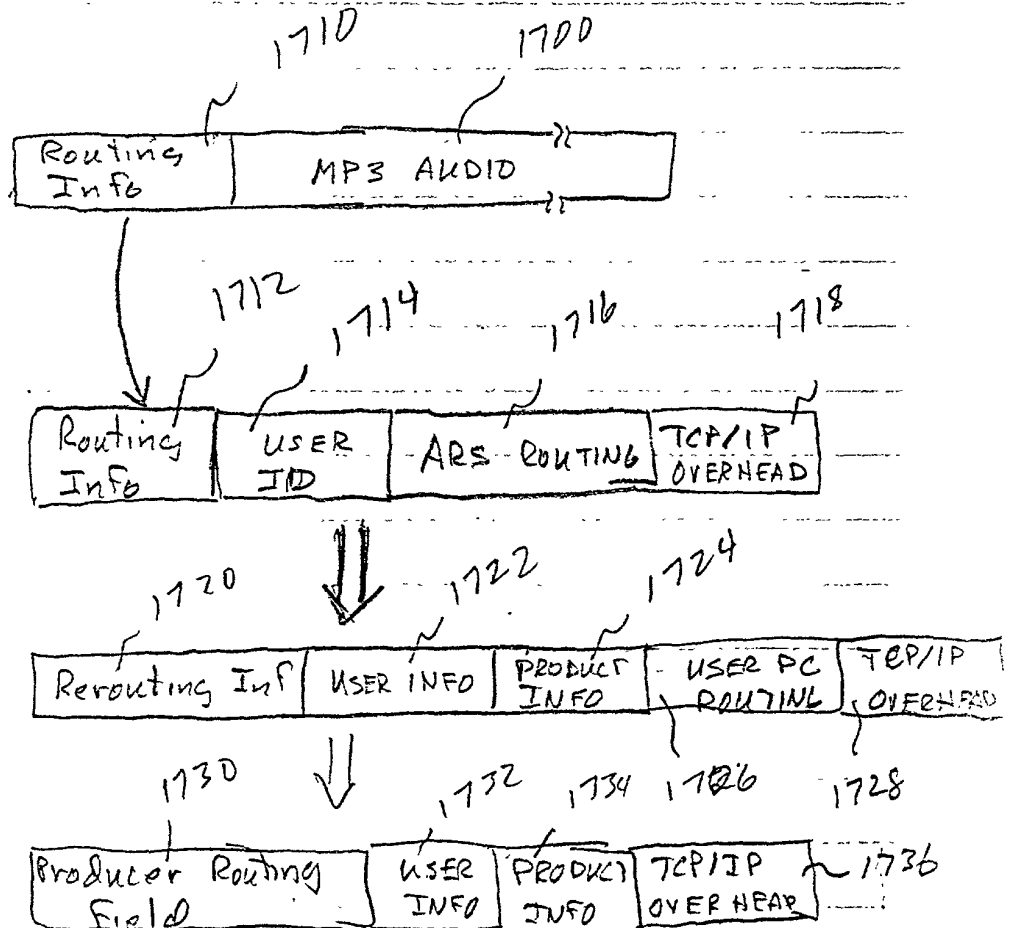 1710 1700
Routing
Info
MP3 AUDIO
1712 1714 1716 1718
Routing
Info
USER
ID
ARS ROUTING
TCP/IP
OVERHEAD
1720 1722 1724
Rerouting Inf
USER INFO
PRODUCT
INFO
USER PC
ROUTING
TCP/IP
OVERHEAD
1730 1732 1734 1726 1728
Producer Routing
Field
USER
INFO
PRODUCT
INFO
TCP/IP
OVERHEAD
1736